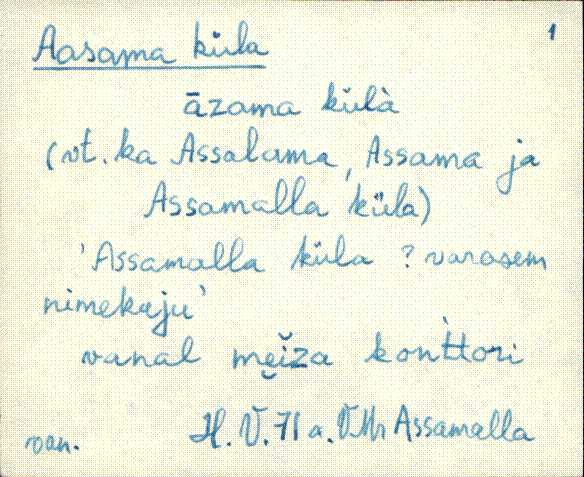 1
Aasama küla
āzama külà
(vt. ka Assalama, Assama ja
Assamalla küla)
'Assamalla küla ? varasem
nimekuju'
vanal mei̯za kontt̀ori
van. H. V. 71 a. VMr Assamalla